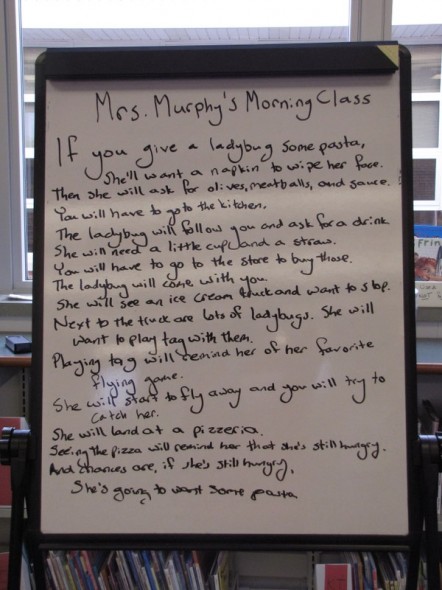 Mrs. Murphy's Morning Class
If you give a ladybug some pasta,
She'll want a napkin to wipe her face.
Then she will ask for olives, meatballs, and sauce.
You will have to go to the kitchen.
The ladybug will follow you and ask for a drink
She will need a little cup and a straw.
You will have to go to the store to buy those.
The ladybug will come with you.
She will see an ice cream truck and want to stop.
Next to the truck are lots of ladybugs. She will
want to play tag with them.
Playing tag will remind her of her favorite
flying game.
She will start to fly away and you will try to
catch her.
She will land at a pizzeria.
Seeing the pizza will remind her that she's still hungry.
And chances are, if she's still hungry,
She's going to want some pasta